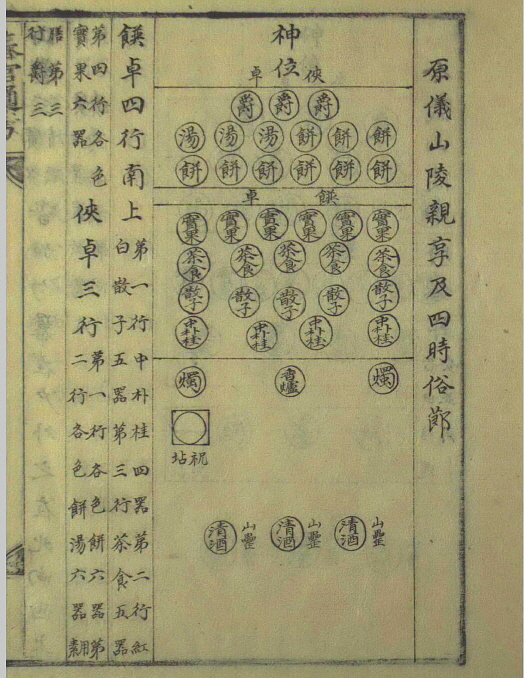 原儀山陵親享及四時俗節
神位
俠卓
爵 爵 爵
餠 餠 餠 湯 湯 湯
餠 餠 餠 餠 餠 餠
饌卓
實果 實果 實果 實果 實果 實果
茶食 茶食 茶食 茶食 茶食
散子 散子 散子 散子 散子
中朴桂 中朴桂 中朴桂 中朴桂
燭 香爐 燭
祝坫
山罍 清酒 山罍 清酒 山罍 清酒
饌卓四行南上
第一行中朴桂四器第二行紅
白散子五器第三行茶食五器
第四行各色
實果六器
俠卓三行
第一行各色餠六器第
二行各色餠湯六器
第三
行爵三